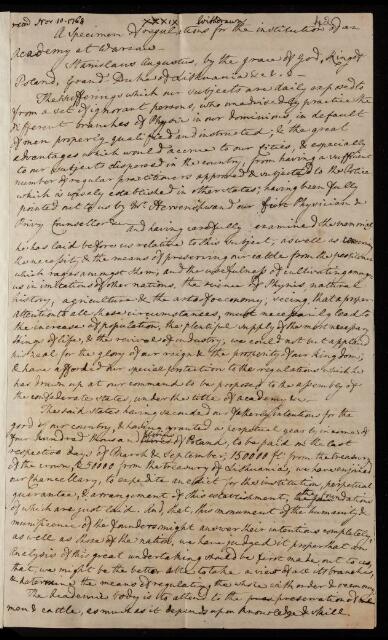 read Nov 10. 1768 XXXIX Withdrawn
A specimen of regulations for the institution of an
Academy at Warsaw.
Stanislaus Augustus, by the grace of God, King of
Poland, Grand Duke of Lithuania &c &c
The sufferings which our subjects are daily exposed to
from a set of ignorant persons, who unadvisedly practice the
different branches of Physic in our dominions, in default
of men properly qualified and instructed; & the great
advantages which would accrue to our cities, & especially
to our subjects dispersed in the country, from having a sufficient
number of regular practitioners approved & subjected to the Police
which is wisely established in other states; having been fully
pointed out to us by Mr. our first Physician &
Privy Counsellor & And having carefully examined the memorial
he has laid before us relative to this subject, as well as concerning
the necessity & the means of preserving our cattle from the pestilence
which rages amongst them, and the usefulness of cultivating amongst
us in imitation of other nations, the science of Physics, natural
history, agriculture & the arts of oeconomy; seeing, that a proper
attention to all those circumstances, must necessarily lead to
the increase of population, the plentiful supply of the most necessary
things of life, & the revival of industry, we could not but applaud
his zeal for the glory of our reign & the prosperity of our Kingdom,
& have afforded our special protection to the regulations which he
has drawn up at our command to be proposed to the assembly of
the confederate states, under the title of academy &c.
The said states having seconded our fatherly intentions for the
good of our country, & having granted a perpetual yearly income of
four hundred thousand florins of Poland, to be paid on the last
respective days of March & September; 150000 fl. from the treasury
of the crown, & 50000 from the treasury of Lithuania, we have enjoined
our chancellary, to expedite an edict for the institution, perpetual
guarantee, & arrangement of this establishment, the foundations
of which are just laid. And, that, this monument of the humanity &
munificence of the founders might answer their intentions completely,
as well as those of the nation, we have judged it proper that an
Analysis of this great undertaking should be first made out to us,
that we might be the better able to take a view of all its branches,
& determine the means of regulating the whole with order & oeconomy.
The Academic body is to attend to the preservation of
men & cattle, as much as it depends upon knowledge & skill.